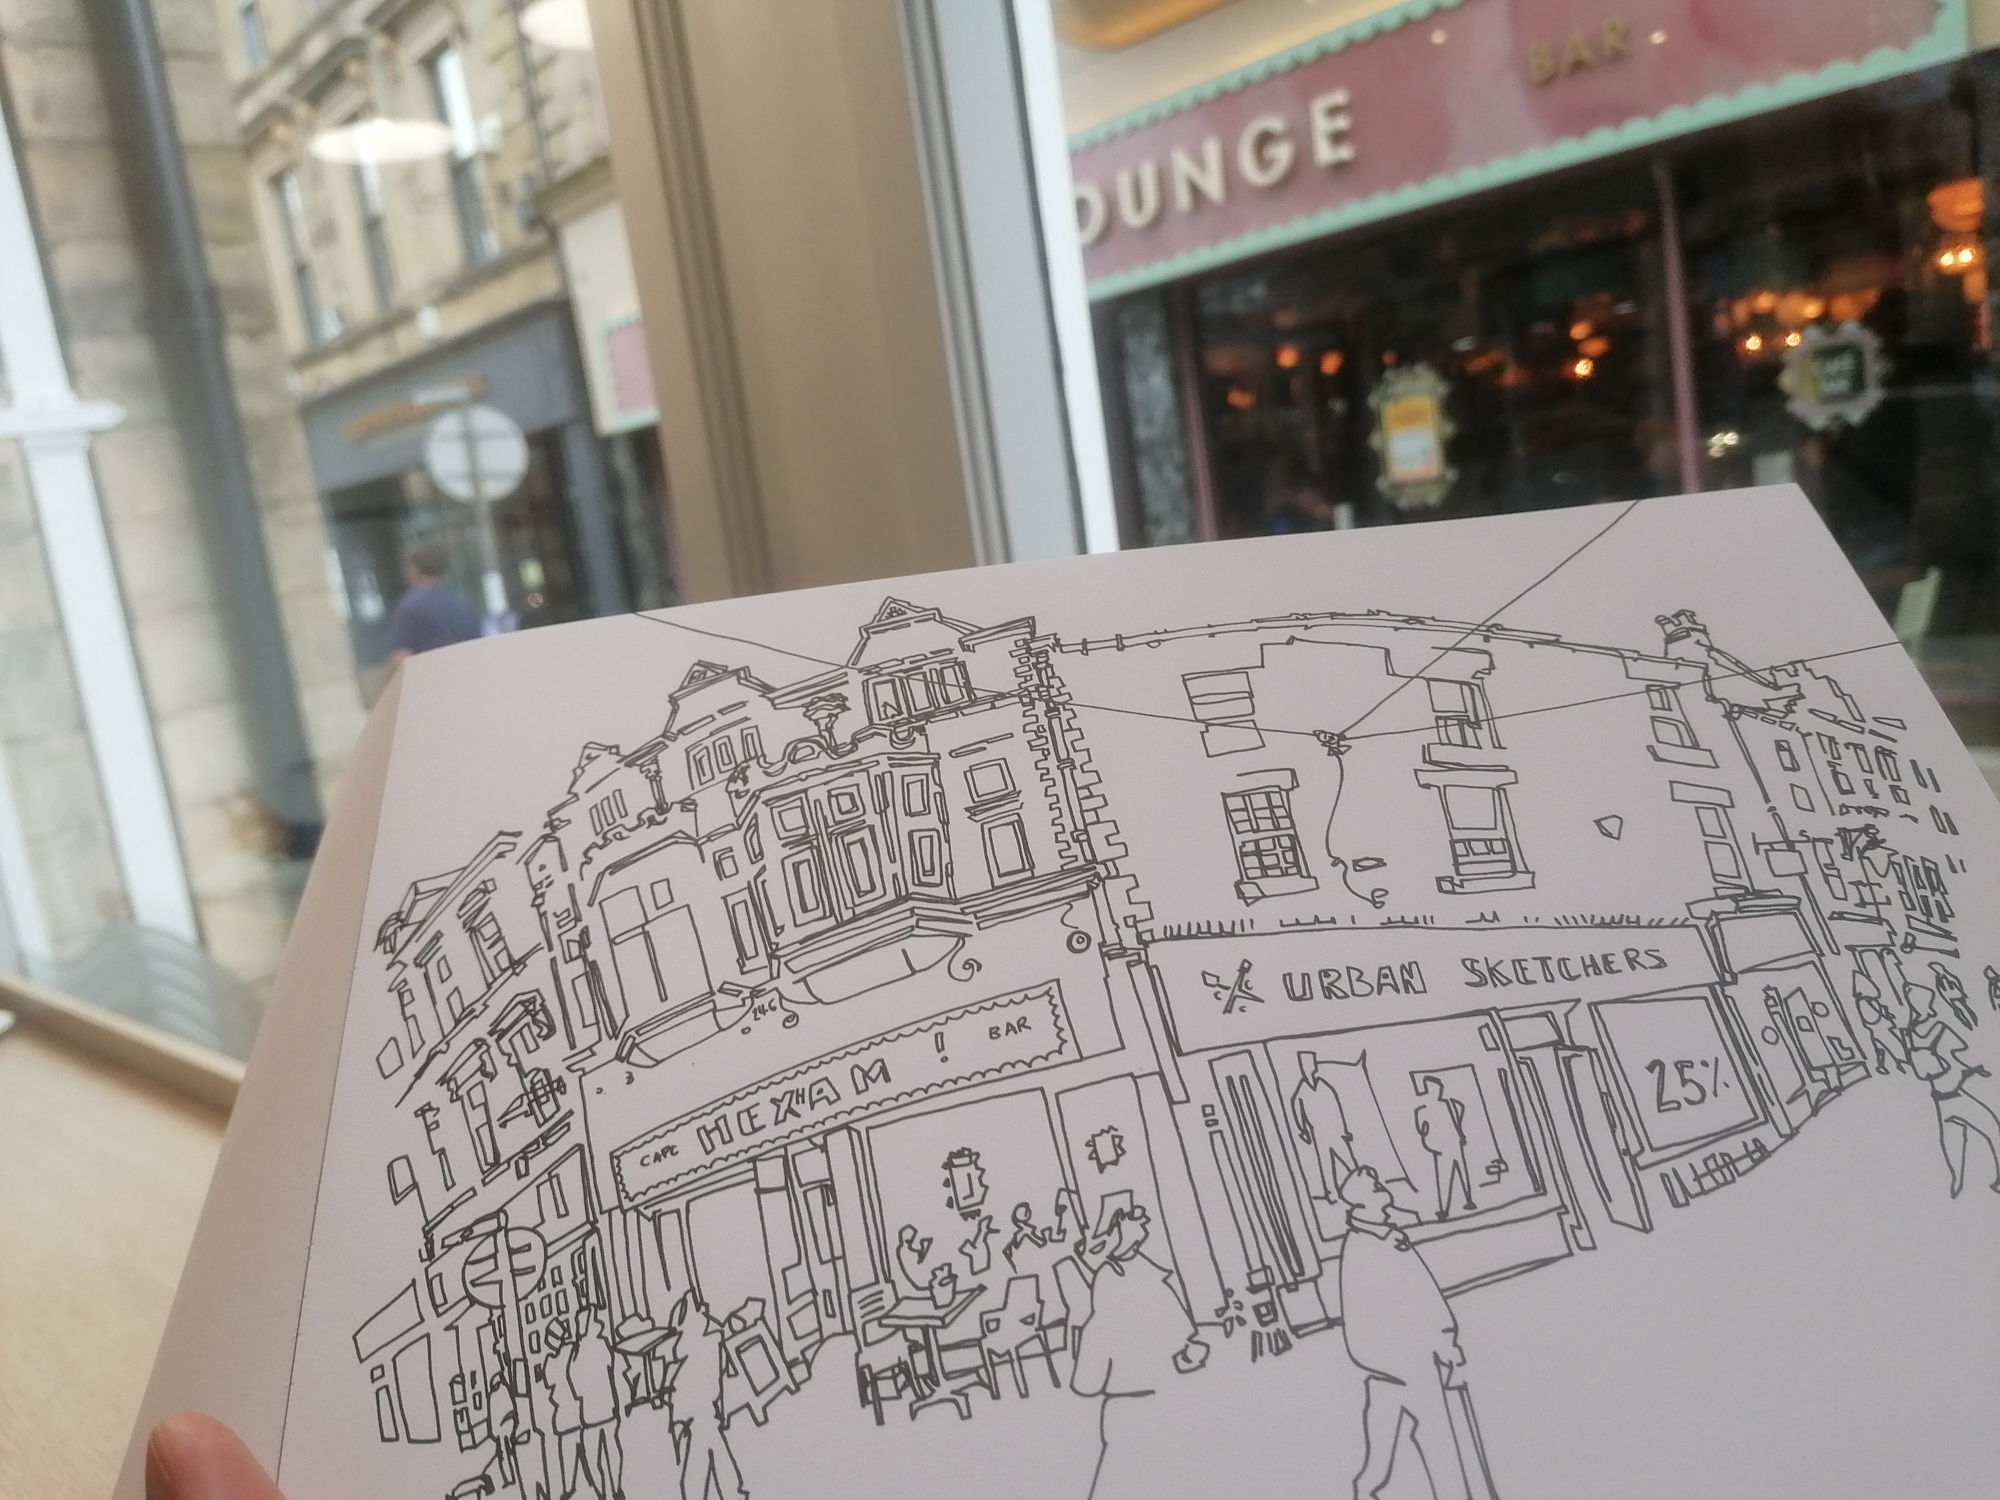 OUNGE
BAR
URBAN SKETCHERS
CAFE HEXHAM! BAR
25%